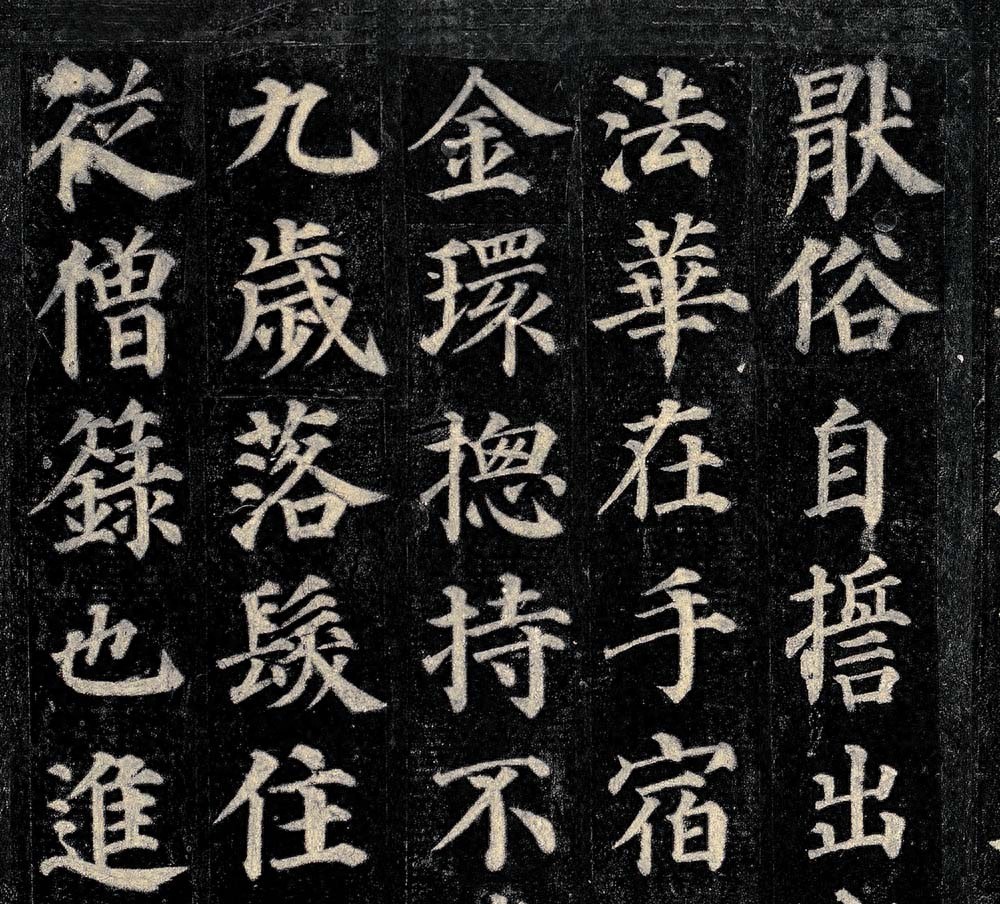 猒俗自誓出
法華在手宿
金環揔持不
九歲落髮住
從僧籙也進